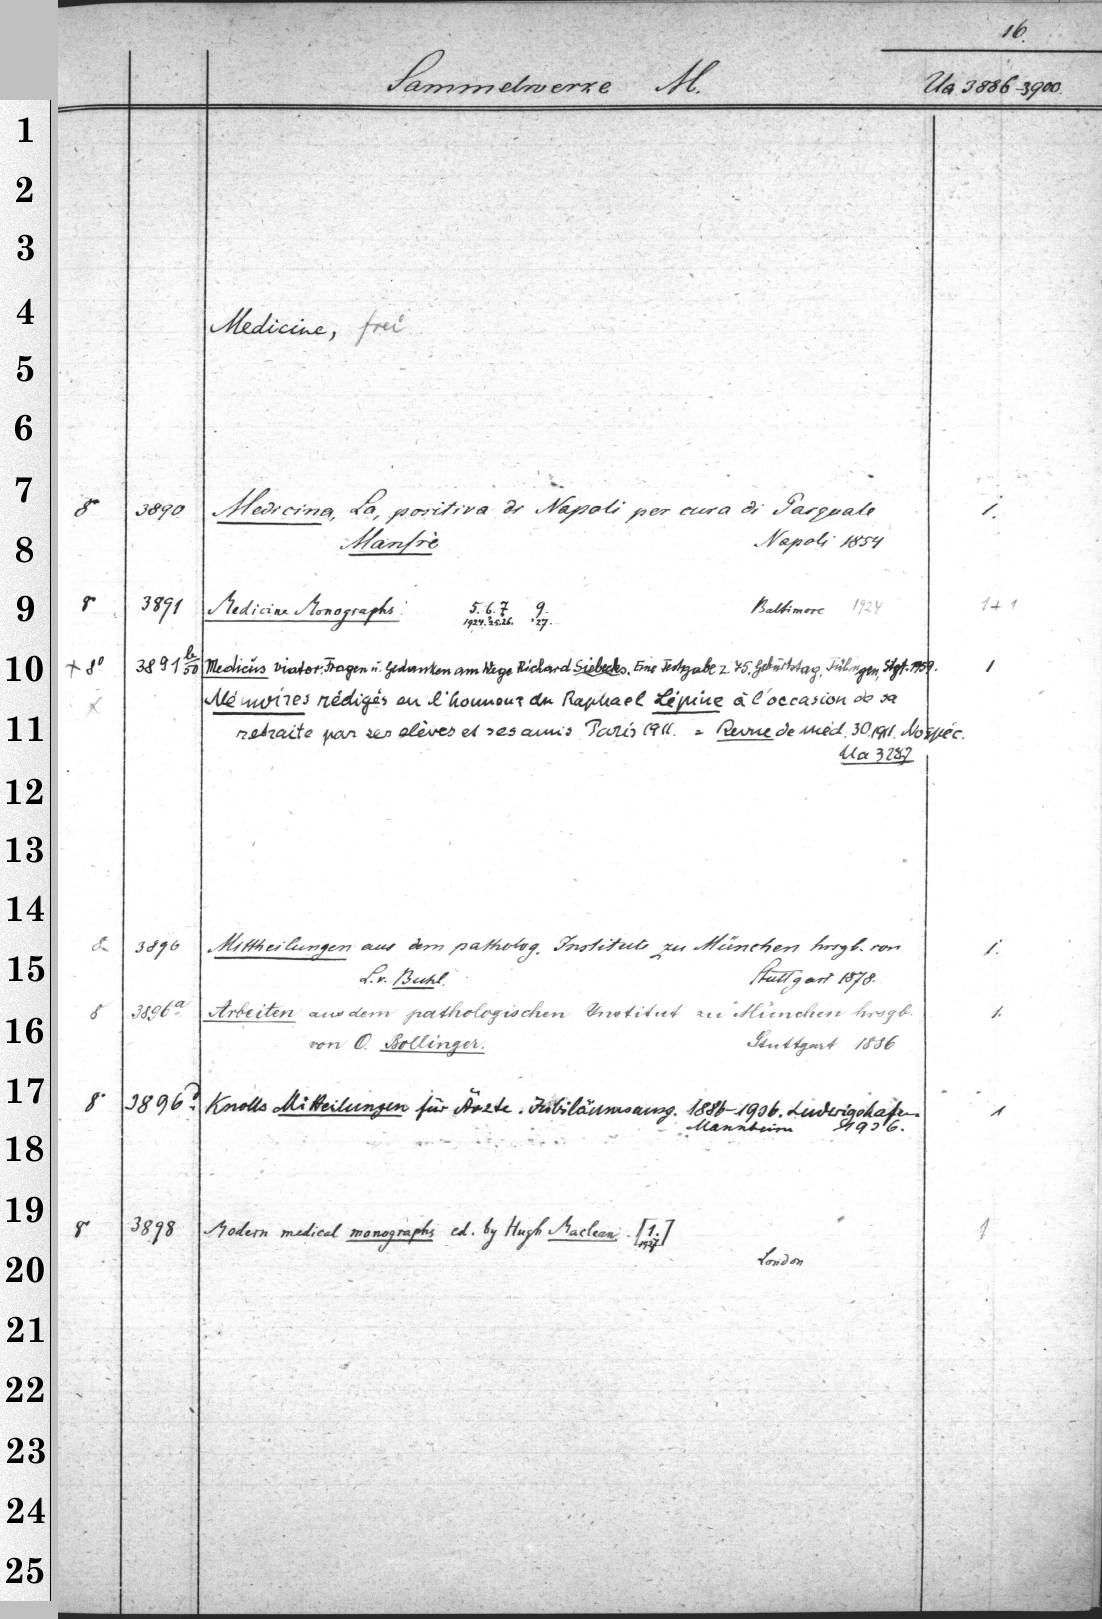 16.
Sammelwerke M. Ua 3886-3900.
1
2
3
4 Medicine, frei
5
6
7 8° 3890 Medicina, La, positiva di Napoli per cura di Pasquale 1.
8 Manfrè Napoli 1854
9 8° 3891 Medicine Monographs 5. 6. 7 9. Baltimore 1924 1+1
1924. 25. 26. '27.
10 + 8° 3891 b/50 Medicus viator. Fragen u. Gedanken am Wege Richard Siebecks. Eine Festgabe z. 75. Geburtstag. Tübingen, Stgt. 1959. 1
x Mémoires rédigés en l'honneur du Raphael Lépine à l'occasion de sa
11 retraite par ses elèves et ses amis Paris 1911. = Revue de méd. 30. 1911. No spéc.
Ua 3287
12
13
14
8° 3896 Mittheilungen aus dem patholog. Institute zu München hrsgb. von 1.
15 L. v. Buhl. Stuttgart 1878.
8 3896a Arbeiten aus dem pathologischen Institut zu München hrsgb. 1.
16 von O. Bollinger. Stuttgart 1886
17 8° 3896 Knolls Mitteilungen für Ärzte. Jubiläumsausg. 1886-1936. Ludwigshafen. 1
Mannheim 1936.
18
19 8° 3898 Modern medical monographs ed. by Hugh Maclean. [1.] 1
1927
20 London
21
22
23
24
25